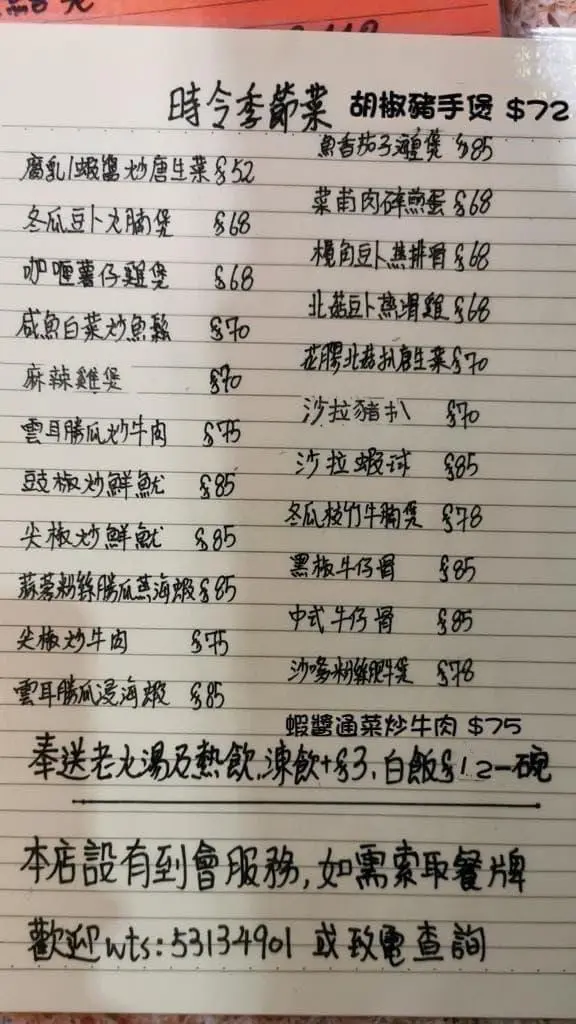 時令季節菜 胡椒豬手煲 $72
腐乳/蝦醬炒唐生菜 $52
冬瓜豆卜火腩煲 $68
咖喱薯仔雞煲 $68
咸魚白菜炒魚鬆 $70
麻辣雞煲 $70
雲耳勝瓜炒牛肉 $75
豉椒炒鮮魷 $85
尖椒炒鮮魷 $85
蒜蓉粉絲勝瓜蒸海蝦 $85
尖椒炒牛肉 $75
雲耳勝瓜浸海蝦 $85
魚香茄子海皇煲 $85
菜甫肉碎煎蛋 $68
欖角豆卜蒸排骨 $68
北菇豆卜蒸滑雞 $68
花膠北菇扒唐生菜 $70
沙拉豬扒 $70
沙拉蝦球 $85
冬瓜枝竹牛腩煲 $78
黑椒牛仔骨 $85
中式牛仔骨 $85
沙嗲粉絲肥牛煲 $78
蝦醬通菜炒牛肉 $75
奉送老火湯及熱飲,凍飲+$3,白飯$12一碗
本店設有到會服務,如需索取餐牌
歡迎wts:53134901 或致電查詢